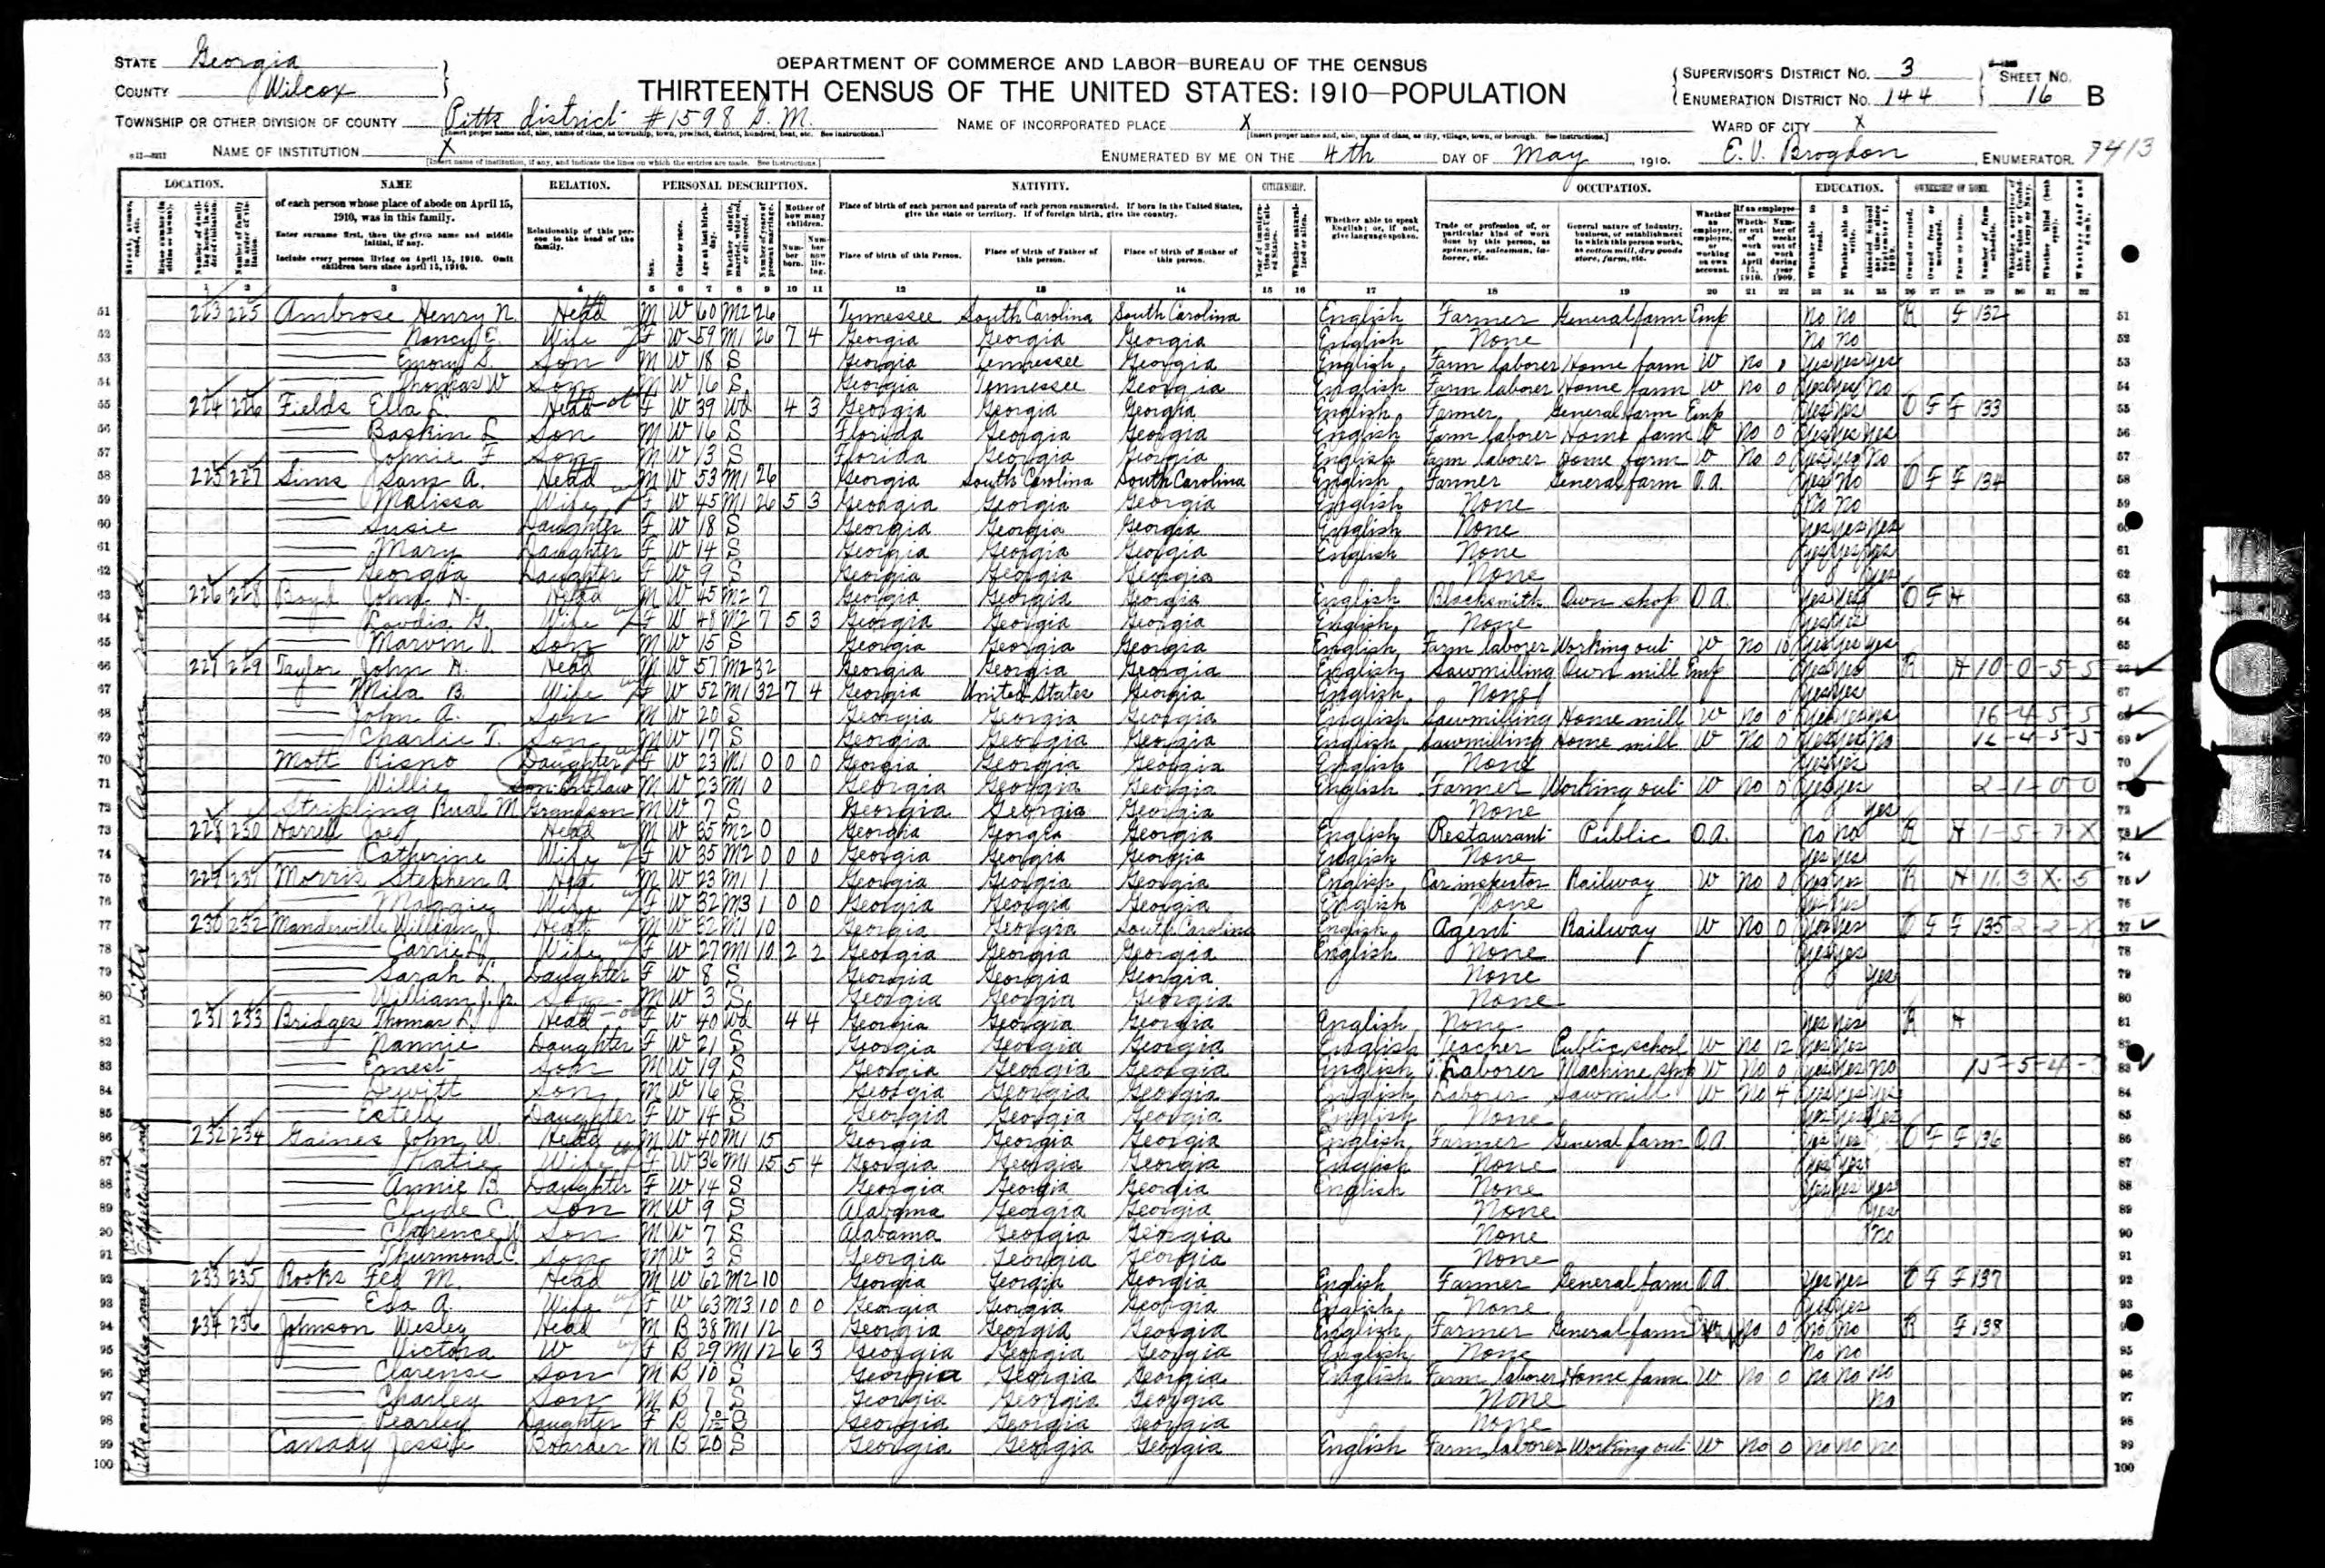 STATE Georgia
COUNTY Wilcox
DEPARTMENT OF COMMERCE AND LABOR—BUREAU OF THE CENSUS
THIRTEENTH CENSUS OF THE UNITED STATES: 1910—POPULATION
SUPERVISOR'S DISTRICT NO. 3
ENUMERATION DISTRICT NO. 144
SHEET NO. 16 B
TOWNSHIP OR OTHER DIVISION OF COUNTY Pitts district #1598 G.M.
NAME OF INCORPORATED PLACE X
WARD OF CITY X
NAME OF INSTITUTION X
ENUMERATED BY ME ON THE 4th DAY OF May, 1910. E. V. Brogdon, ENUMERATOR. 7413
LOCATION. NAME RELATION. PERSONAL DESCRIPTION. NATIVITY. CITIZENSHIP. OCCUPATION. EDUCATION. OWNERSHIP OF HOME.
of each person whose place of abode on April 15, 1910, was in this family.
Enter surname first, then the given name and middle initial, if any.
Include every person living on April 15, 1910. Omit children born since April 15, 1910.
Relationship of this person to the head of the family.
Place of birth of each person and parents of each person enumerated. If born in the United States, give the state or territory. If of foreign birth, give the country.
Place of birth of this Person. Place of birth of Father of this person. Place of birth of Mother of this person.
Whether able to speak English; or, if not, give language spoken.
51 223 225 Ambrose Henry N. Head M W 60 M2 26 Tennessee South Carolina South Carolina English Farmer General farm Emp No No R F 132
52 Nancy E. Wife F W 59 M1 26 7 4 Georgia Georgia Georgia English None No No
53 Emory S. Son M W 18 S Georgia Tennessee Georgia English Farm laborer Home farm W No 0 Yes Yes Yes
54 Thomas W Son M W 16 S Georgia Tennessee Georgia English Farm laborer Home farm W No 0 Yes Yes No
55 224 226 Fields Ella L. Head F W 39 Wd 4 3 Georgia Georgia Georgia English Farmer General farm Emp Yes Yes O F F 133
56 Baskin L Son M W 16 S Florida Georgia Georgia English Farm laborer Home farm W No 0 Yes Yes Yes
57 Johnie F Son M W 13 S Florida Georgia Georgia English Farm laborer Home farm W No 0 Yes Yes No
58 225 227 Sims Sam A. Head M W 53 M1 26 Georgia South Carolina South Carolina English Farmer General farm O.A. Yes No O F F 134
59 Malissa Wife F W 45 M1 26 5 3 Georgia Georgia Georgia English None No No
60 Susie Daughter F W 18 S Georgia Georgia Georgia English None Yes Yes Yes
61 Mary Daughter F W 14 S Georgia Georgia Georgia English None Yes Yes Yes
62 Georgia Daughter F W 9 S Georgia Georgia Georgia None Yes
63 226 228 Boyd John H. Head M W 45 M2 7 Georgia Georgia Georgia English Blacksmith Own shop O.A. Yes Yes O F H
64 G. Wife F W 48 M2 7 5 3 Georgia Georgia Georgia English None Yes Yes
65 Marvin Son M W 15 S Georgia Georgia Georgia English Farm laborer Working out W No 10 Yes Yes Yes
66 227 229 Taylor John H. Head M W 57 M2 32 Georgia Georgia Georgia English Sawmilling Own mill Emp Yes No R H 10-0-5-5
67 B. Wife F W 52 M1 32 7 4 Georgia United States Georgia English None Yes Yes
68 John A. Son M W 20 S Georgia Georgia Georgia English Sawmilling Home mill W No 0 Yes Yes No 16-4-5-5
69 Charlie T. Son M W 17 S Georgia Georgia Georgia English Sawmilling Home mill W No 0 Yes Yes No 16-4-5-5
70 Mott Daughter F W 23 M1 0 0 0 Georgia Georgia Georgia English None Yes Yes
71 Willie Son-in-law M W 23 M1 0 Georgia Georgia Georgia English Farmer Working out W No 0 Yes Yes 2-1-0-0
72 Stripling Rual M Grandson M W 7 S Georgia Georgia Georgia None Yes
73 228 230 Harrell Joe Head M W 35 M2 0 Georgia Georgia Georgia English Restaurant Public O.A. No No R H 1-5-7-X
74 Catherine Wife F W 35 M2 0 0 0 Georgia Georgia Georgia English None Yes Yes
75 229 231 Morris Stephen A Head M W 23 M1 1 Georgia Georgia Georgia English Car inspector Railway W No 0 Yes Yes R H 11-3-X-5
76 Maggie Wife F W 32 M3 1 0 0 Georgia Georgia Georgia English None Yes Yes
77 230 232 Manderville William J. Head M W 32 M1 10 Georgia Georgia South Carolina English Agent Railway W No 0 Yes Yes O F F 135 2-2-X
78 Carrie L. Wife F W 27 M1 10 2 2 Georgia Georgia Georgia English None Yes Yes
79 Sarah L. Daughter F W 8 S Georgia Georgia Georgia None Yes
80 William J. Jr. Son M W 3 S Georgia Georgia Georgia None
81 231 233 Bridges Thomas L. Head F W 40 Wd 4 4 Georgia Georgia Georgia English None Yes Yes R H
82 Nannie Daughter F W 21 S Georgia Georgia Georgia English Teacher Public school W No 12 Yes Yes
83 Ernest Son M W 19 S Georgia Georgia Georgia English Laborer Machine shop W No 0 Yes Yes No 15-5-4-
84 Dewitt Son M W 16 S Georgia Georgia Georgia English Laborer Sawmill W No 4 Yes Yes Yes
85 Estell Daughter F W 14 S Georgia Georgia Georgia English None Yes Yes Yes
86 232 234 Gaines John W. Head M W 40 M1 15 Georgia Georgia Georgia English Farmer General farm O.A. Yes Yes O F F 136
87 Katie Wife F W 36 M1 15 5 4 Georgia Georgia Georgia English None Yes Yes
88 Annie B. Daughter F W 14 S Georgia Georgia Georgia English None Yes Yes Yes
89 Clyde C. Son M W 9 S Alabama Georgia Georgia None Yes
90 Clarence W Son M W 7 S Alabama Georgia Georgia None No
91 Thurmond C Son M W 3 S Georgia Georgia Georgia None
92 233 235 Rooks M. Head M W 62 M2 10 Georgia Georgia Georgia English Farmer General farm O.A. Yes Yes O F F 137
93 A. Wife F W 63 M3 10 0 0 Georgia Georgia Georgia English None Yes Yes
94 234 236 Johnson Wesley Head M B 38 M1 12 Georgia Georgia Georgia English Farmer General farm No 0 No No R F 138
95 Victoria W F B 29 M1 12 6 3 Georgia Georgia Georgia English None No No
96 Clarense Son M B 10 S Georgia Georgia Georgia English Farm laborer Home farm W No 0 No No No
97 Charley Son M B 7 S Georgia Georgia Georgia None No
98 Pearley Daughter F B S Georgia Georgia Georgia None
99 Canady Jessie Boarder M B 20 S Georgia Georgia Georgia English Farm laborer Working out W No 0 No No No
100
Pitts and Ashburn road
Pitts and Hatley road